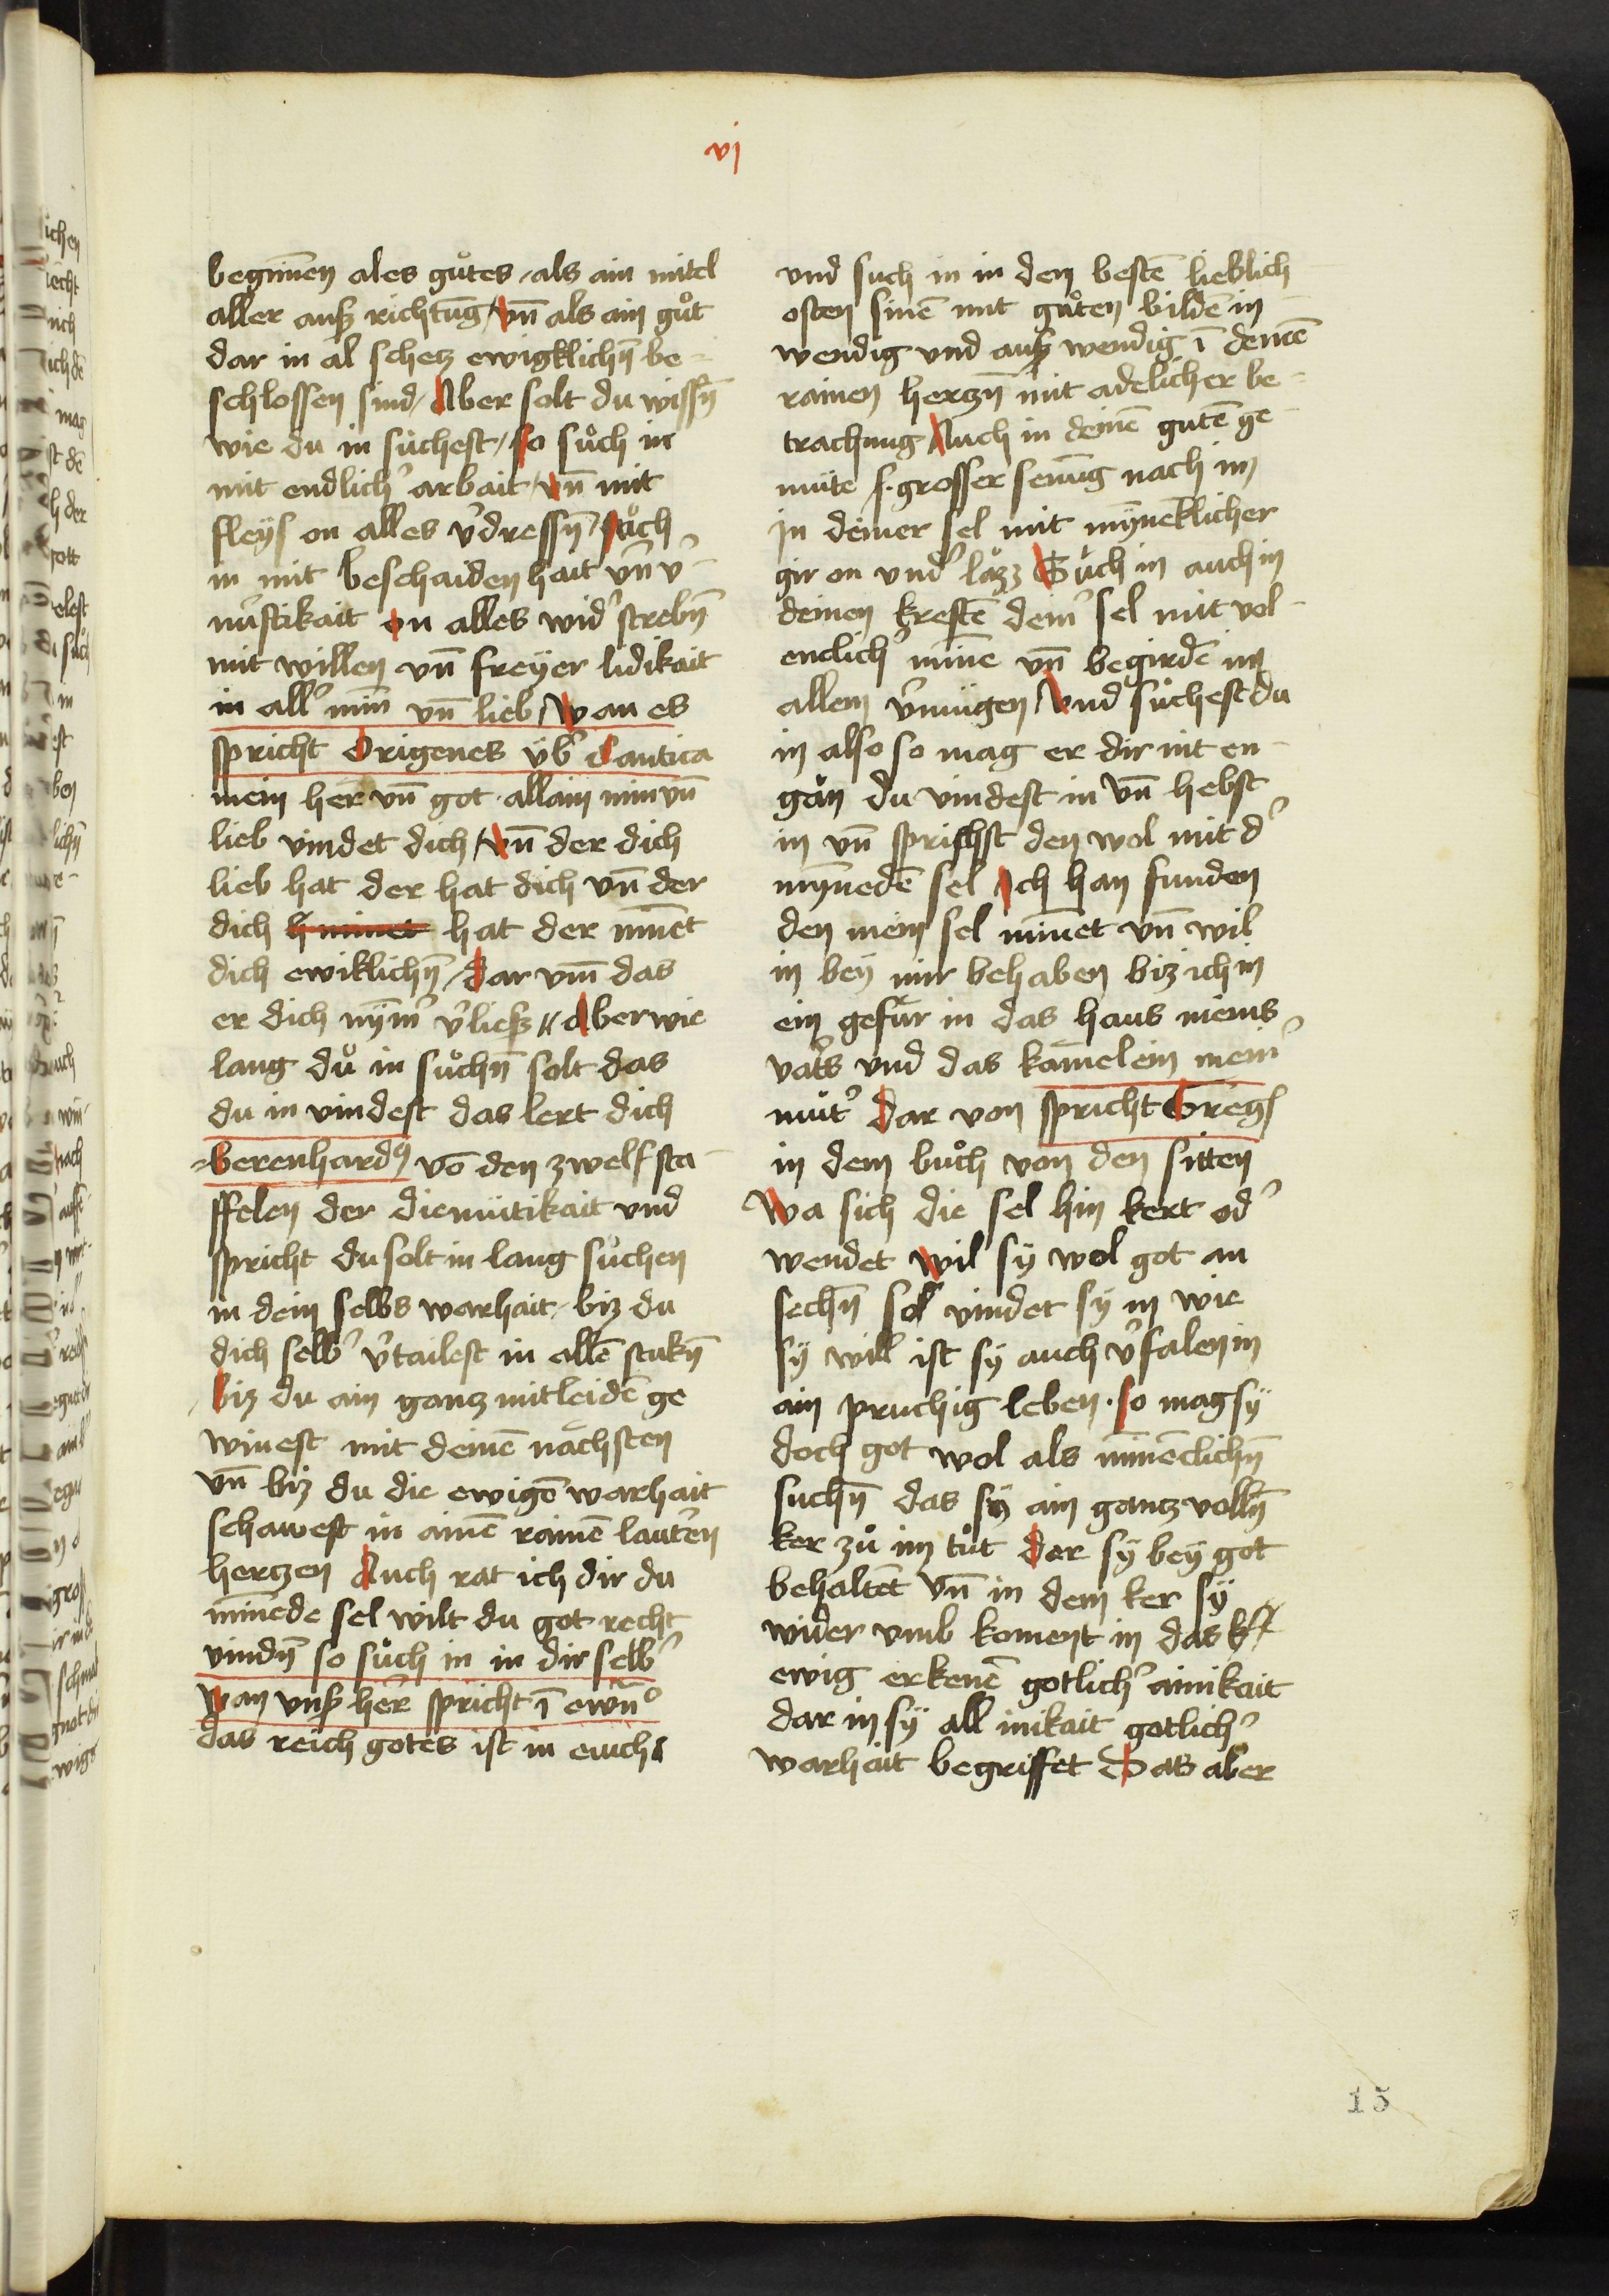 vj
begīnen ales gůtes / als ain mitel
aller ausz richtūg / vn̄ als ain gůt
dar in al schetz ewigklichn̄ be-
schlossen sind / Aber solt du wissn̄
wie du in sůchest / so sůch in
mit endlich' arbait / vn̄ mit
fleÿs on alles v'dressn̄ / Sůch
in mit beschaidenhait vn̄ v'-
nu̇ftikait on alles wid' strebn̄
mit willen vn̄ freÿer lidikait
in all' min̄ vn̄ lieb / Wan es
spricht Origenes üb' Cantica
mein her vn̄ got . allain min vn̄
lieb vindet dich / vn̄ der dich
lieb hat der hat dich vn̄ der
dich h minet hat der minēt
dich ewiklichn̄ / Dar vm̄ das
er dich nÿm̄' v'liesz // Aber wie
lang dů in sůchn̄ solt das
du in vindest das lert dich
berenhardꝰ vō den zwelf sta-
ffelen der diemütikait vnd
spricht du solt in lang sůchen
in dein selbs warhait / biz du
dich selb' v'tailest in allē stukn̄
biz du ain gantz mitleidē ge
winest mit deinē nächsten
vn̄ biz du die ewigē warhait
schawest in ainē rainē lautern
hertzen Auch rat ich dir du
minēde sel wilt du got recht
vindn̄ so sůch in in dir selb'
Wan vnsz her spricht ī ewn̄°
das reich gotes ist in euch
vnd such in in den bestē lieblich
osten sinē mit gůten bildē in
wendig vnd ausz wendig ī deinē
rainen hertzn̄ mit adelicher be-
trachung Auch in deinē gutē ge
müte s. grosser senūg nach in /
in deiner sel mit mÿneklicher
gir on vnd' läzz Sůch in auch in
deinen kreftē dein' sel mit vol-
endlich' mine vn̄ begirdē im
allem v'mügen / Vnd sůchest du
in also so mag er dir nit en-
gän du vindest in vn̄ hebst
in vn̄ sprichst den wol mit d'
mÿnedē sel Ich han funden
den mein sel minet vn̄ wil
in beÿ mir behaben biz ich in
ein gefür in das haus meins
vat's vnd das kamelein mein'
mut' Dar von spricht Greg
in dem bůch von den sitten
Wa sich die sel hin kert od'
wendet wil sÿ wol got an
sechn̄ sol vindet sÿ in wie
sÿ will ist sÿ auch v'falen in
ain pruchig leben . so mag sÿ
doch got wol als minēclichn̄
suchn̄ das sÿ ain gantz volln̄
ker zů im tůt Der sÿ beÿ got
behaltēt vn̄ in dem ker sÿ
wider vmb koment in das
ewig erkenē gotlich' ainikait
dar in sÿ all inikait gotlich'
warhait begriffet Das aber
15